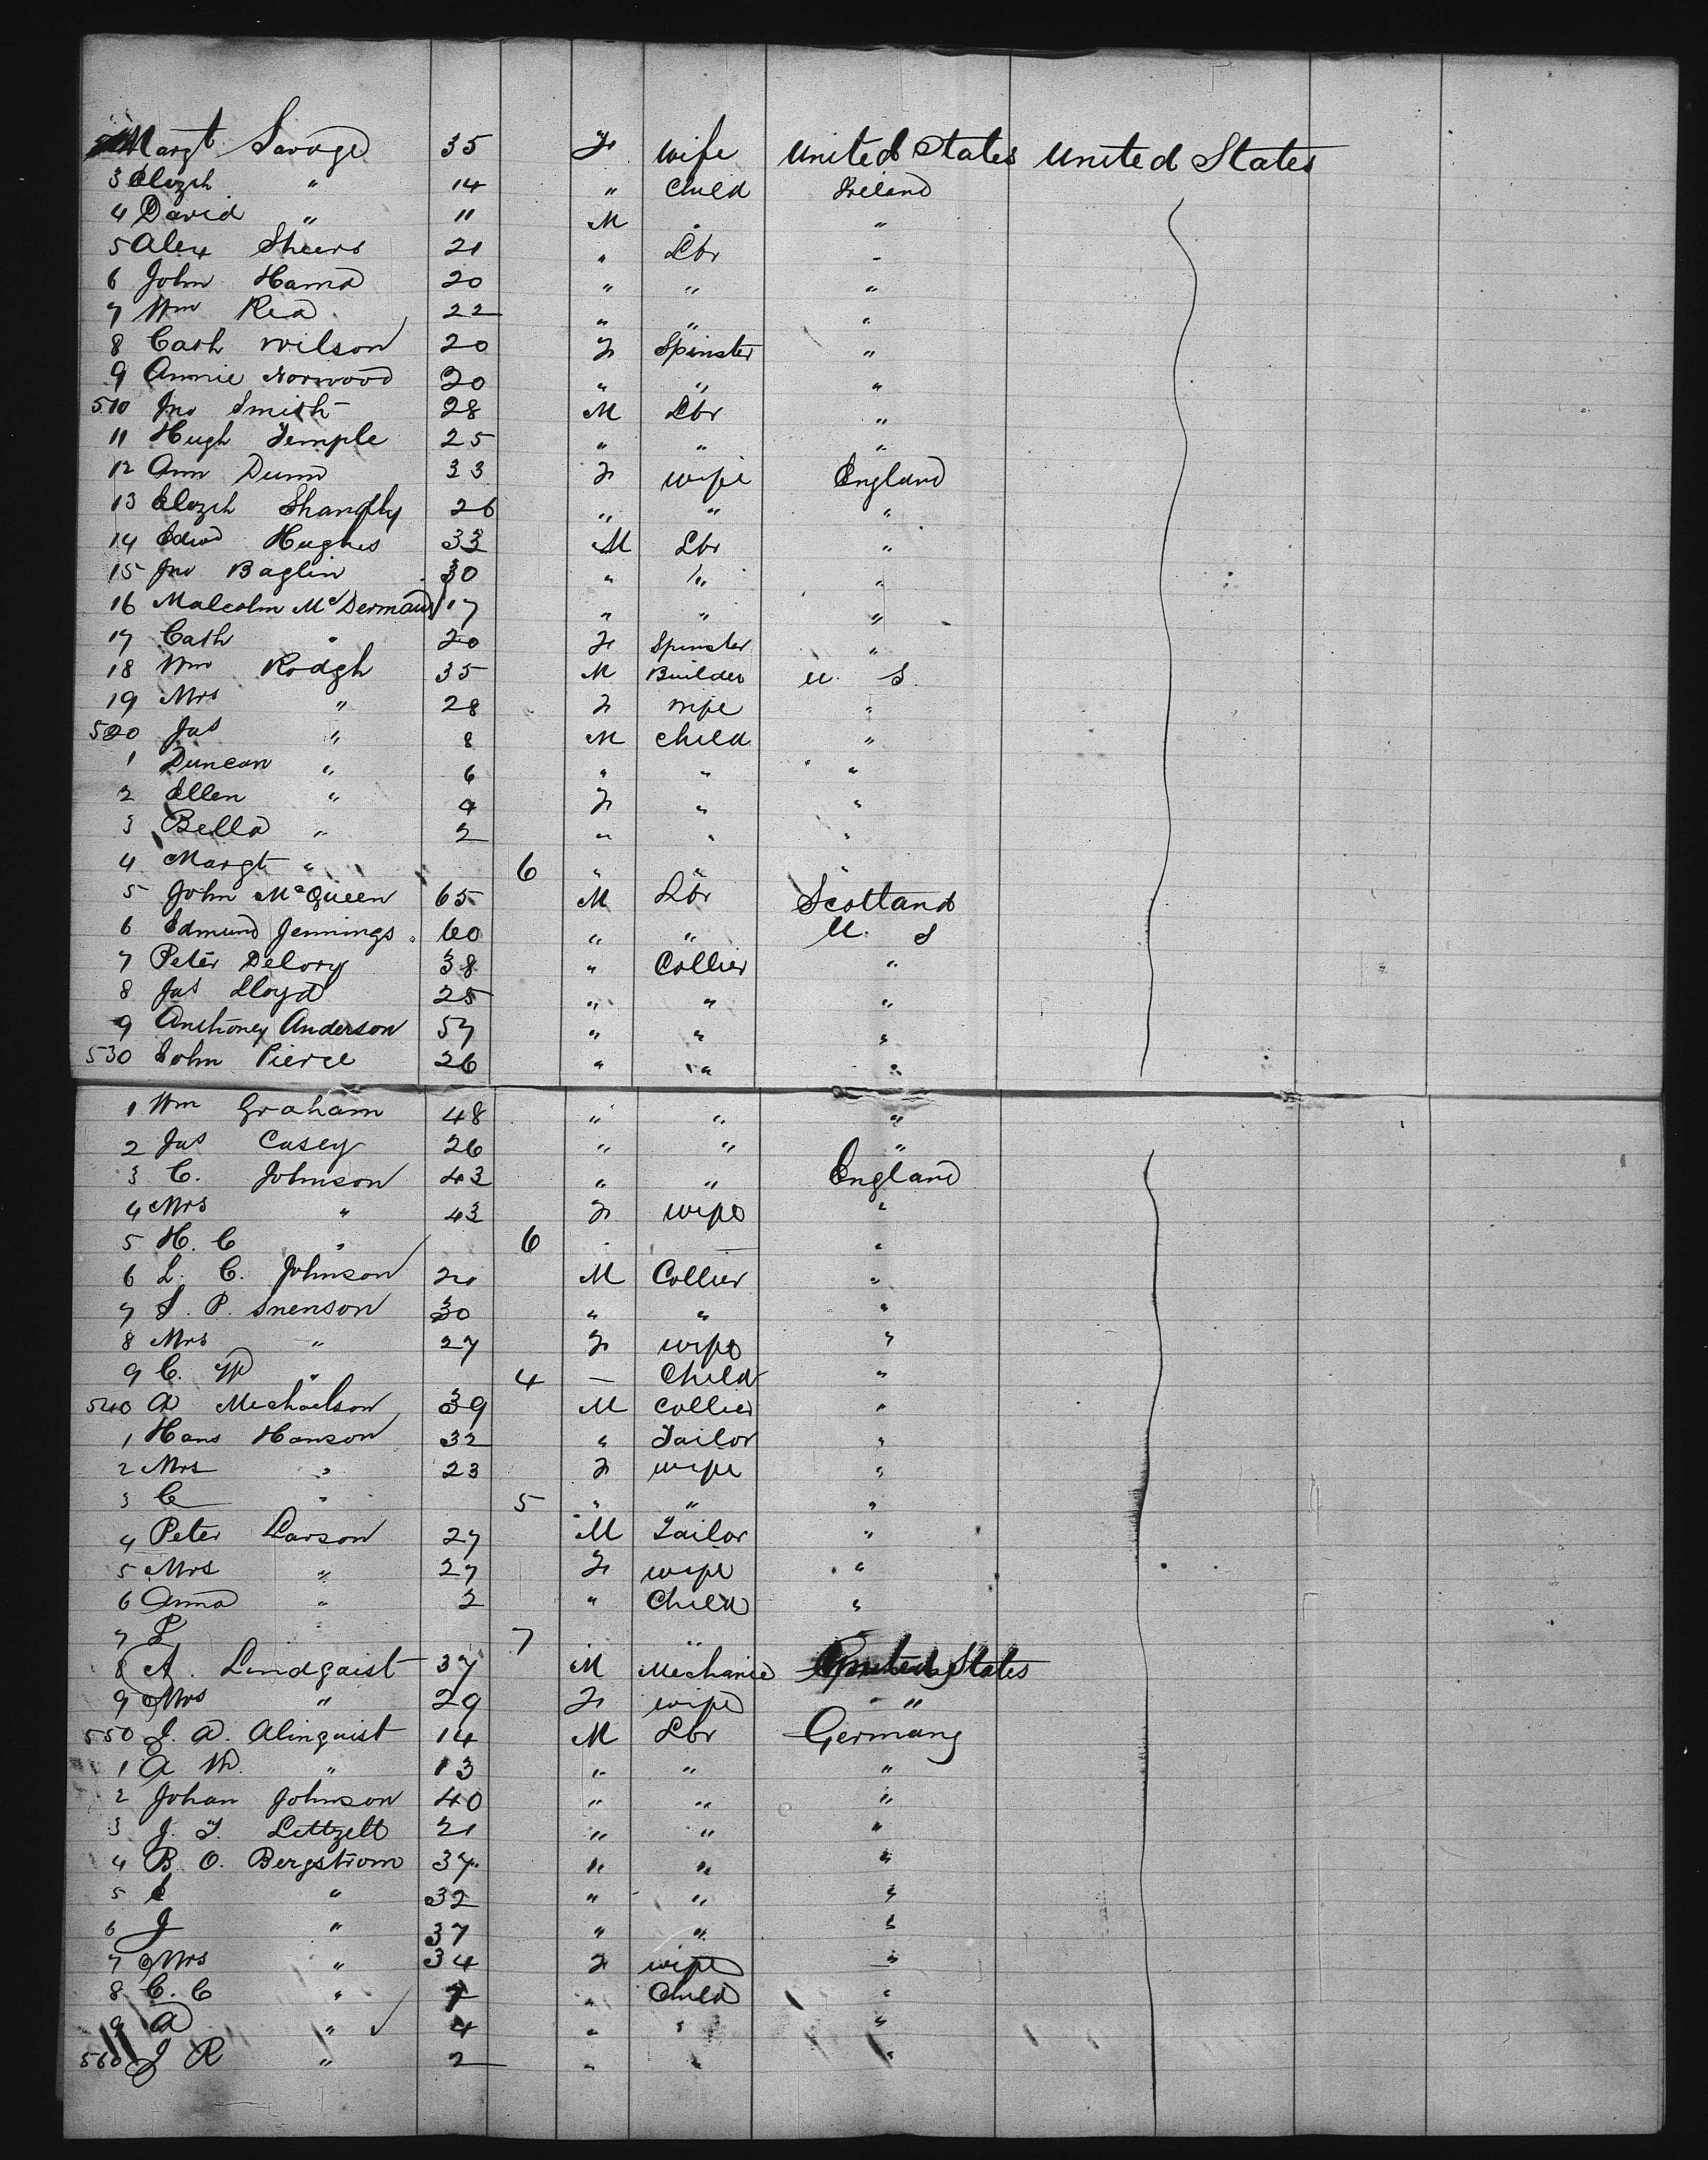 Margt Savage 35 F wife United States United States
3 Elizth " 14 " Child Ireland
4 David " 11 M " "
5 Alex Sheers 21 " Lbr "
6 John Hanna 20 " " "
7 Wm Rea 22 " " "
8 Cath Wilson 20 F Spinster "
9 Annie Norwood 20 " " "
510 Jno Smith 28 M Lbr "
11 Hugh Temple 25 " " "
12 Ann Dunn 33 F wife England
13 Elizth 26 " " "
14 Edwd Hughes 33 M Lbr "
15 Jno Baglin 30 " " "
16 Malcolm McDermaid 17 " " "
17 Cath " 20 F Spinster "
18 Wm Rodgh 35 M Builder U S
19 Mrs " 28 F wife "
520 Jas " 8 M child "
1 Duncan " 6 " " "
2 Ellen " 4 F " "
3 Bella " 2 " " "
4 Margt " 6 " " "
5 John McQueen 65 M Lbr Scotland
6 Edmund Jennings 60 " " U. S
7 Peter Delory 38 " Collier "
8 Jas Lloyd 25 " " "
9 Anthoney Anderson 57 " " "
530 John Pierce 26 " " "
1 Wm Graham 48 " " "
2 Jas Casey 26 " " "
3 C. Johnson 43 " " England
4 Mrs " 43 F wife "
5 H. C " 6 " — "
6 L. C. Johnson 20 M Collier "
7 S. P. Snenson 30 " " "
8 Mrs " 27 F wife "
9 C. " 4 — Child "
540 A Michaelson 39 M Collier "
1 Hans Hanson 32 " Tailor "
2 Mrs " 23 F wife "
3 C " 5 " " "
4 Peter Larson 27 M Tailor "
5 Mrs " 27 F wife "
6 Anna " 2 " Child "
7 L " 7 " "
8 A. Lindqaist 37 M Mechanic United States
9 Mrs " 29 F wife " "
550 J. A. Alinquist 14 M Lbr Germany
1 A W. " 13 " " "
2 Johan Johnson 40 " " "
3 J. T. Lettzell 21 " " "
4 B. O. Bergstrom 37 " " "
5 E " 32 " " "
6 J " 37 " " "
7 Mrs " 34 F wife "
8 C. C " 7 " Child "
9 A " 4 " " "
560 J R " 2 " " "